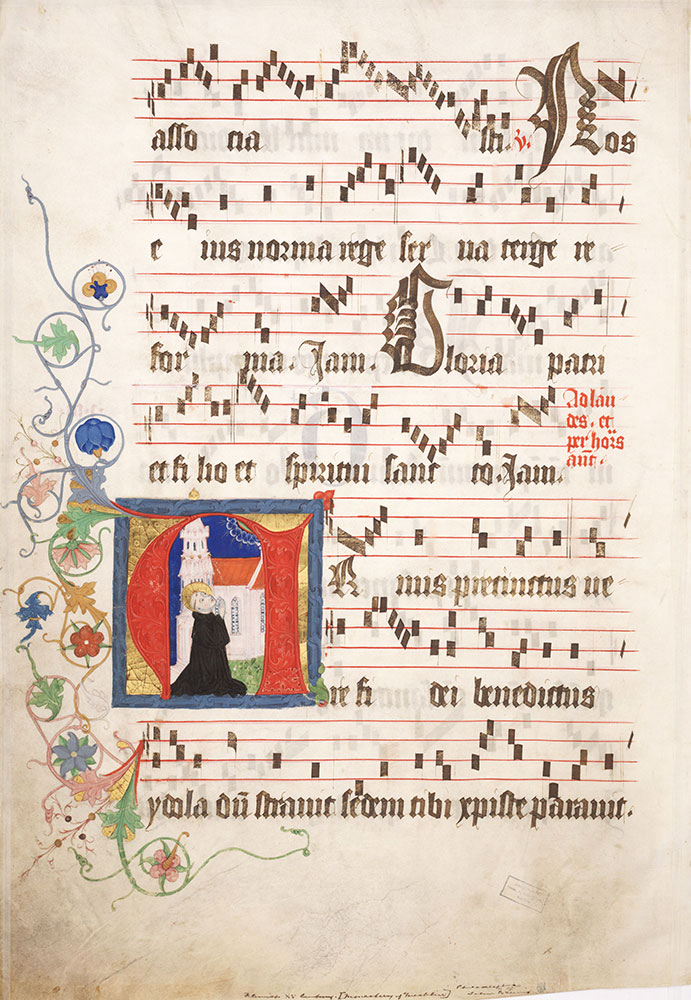 asso cia sti. v. Nos
e ius norma rege ser ua terge re
for ma. Jam. Gloria patri
et fi lio et spiritui sanc to. Jam.
Ad lau
des. et
per horas
ant.
A Rmis precinctus ue
re fi dei benedictus
ydola dum strauit sedem tibi xpiste parauit.